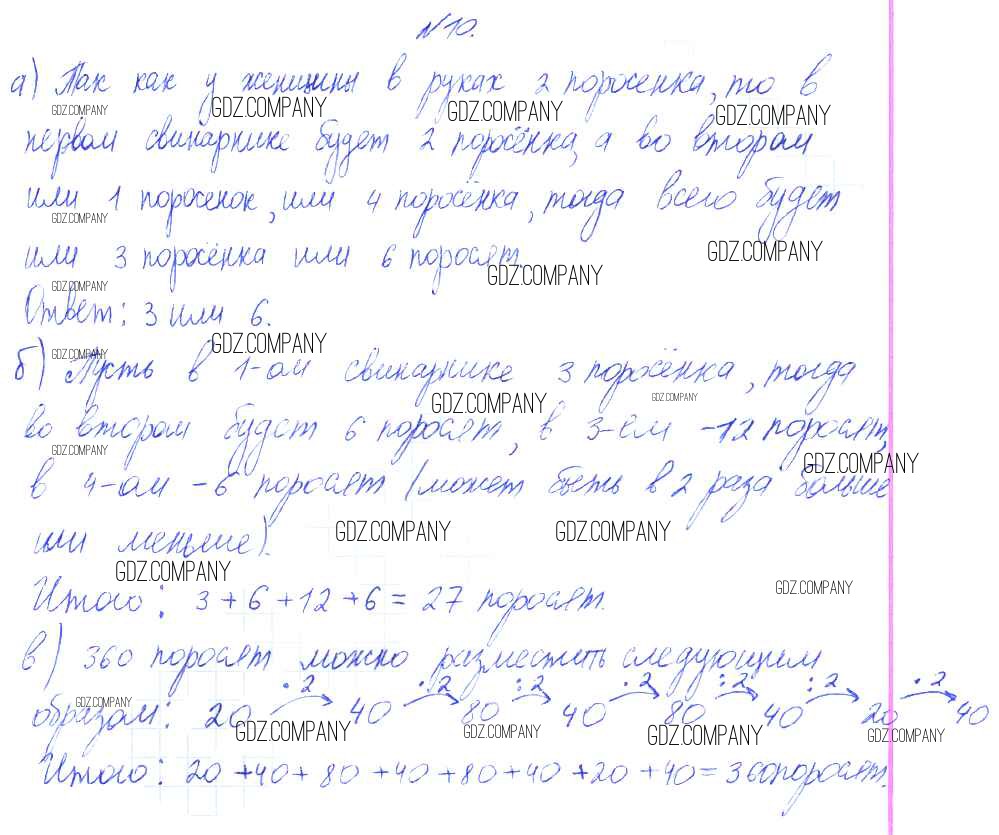 №10.
а) Так как у женщины в руках 2 поросёнка, то в
GDZ.COMPANY GDZ.COMPANY GDZ.COMPANY GDZ.COMPANY
первом свинарнике будет 2 поросёнка, а во втором
или 1 поросенок, или 4 поросёнка, тогда всего будет
GDZ.COMPANY
или 3 поросёнка или 6 поросят.
GDZ.COMPANY GDZ.COMPANY
GDZ.COMPANY
Ответ: 3 или 6.
GDZ.COMPANY GDZ.COMPANY
б) Пусть в 1-ом свинарнике 3 поросёнка, тогда
GDZ.COMPANY GDZ.COMPANY
во втором будет 6 поросят, в 3-ем -12 поросят,
GDZ.COMPANY GDZ.COMPANY
в 4-ом -6 поросят (может быть в 2 раза больше
GDZ.COMPANY GDZ.COMPANY
или меньше).
GDZ.COMPANY GDZ.COMPANY
Итого: 3 + 6 + 12 + 6 = 27 поросят.
в) 360 поросят можно разместить следующим
·2 ·2 :2 ·2 :2 :2 ·2
образом: 20 40 80 40 80 40 20 40
GDZ.COMPANY GDZ.COMPANY GDZ.COMPANY GDZ.COMPANY GDZ.COMPANY
Итого: 20 +40 + 80 +40 +80 +40 +20 +40 = 360 поросят.